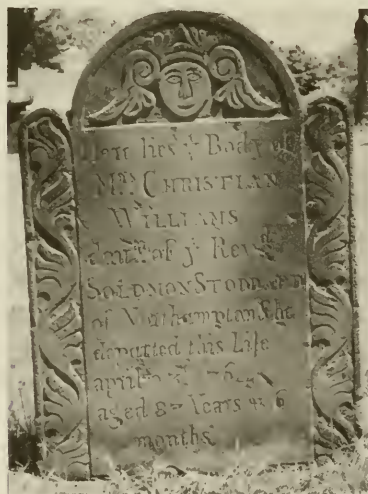 Here lies yᵉ Body of
Mʳˢ CHRISTIAN
WILLIAMS
dautʳ of yᵉ Revᵈ
SOLOMON STODDARD
of Northampton She
departed this Life
april yᵉ 176
aged 87 Years & 6
months